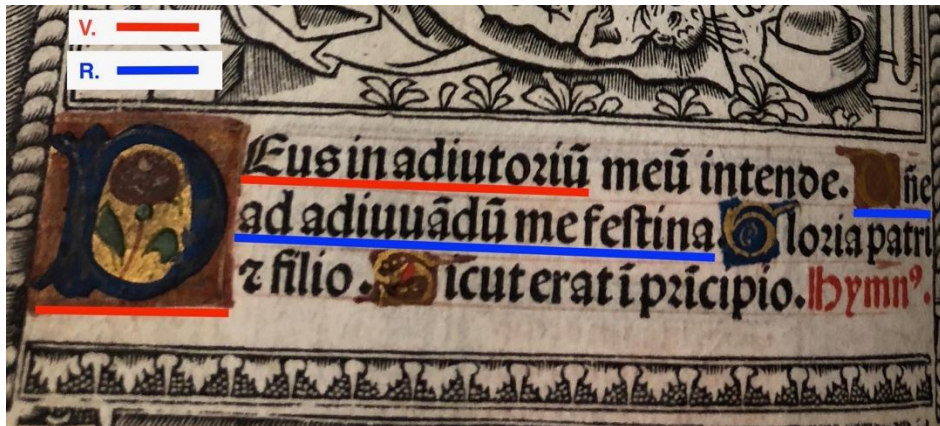 V.
R.
DEus in adiutoriū meū intende. Dñe
ad adiuuādū me festina Gloria patri
⁊ filio. Sicut erat ī pricipio. hymnꝰ.